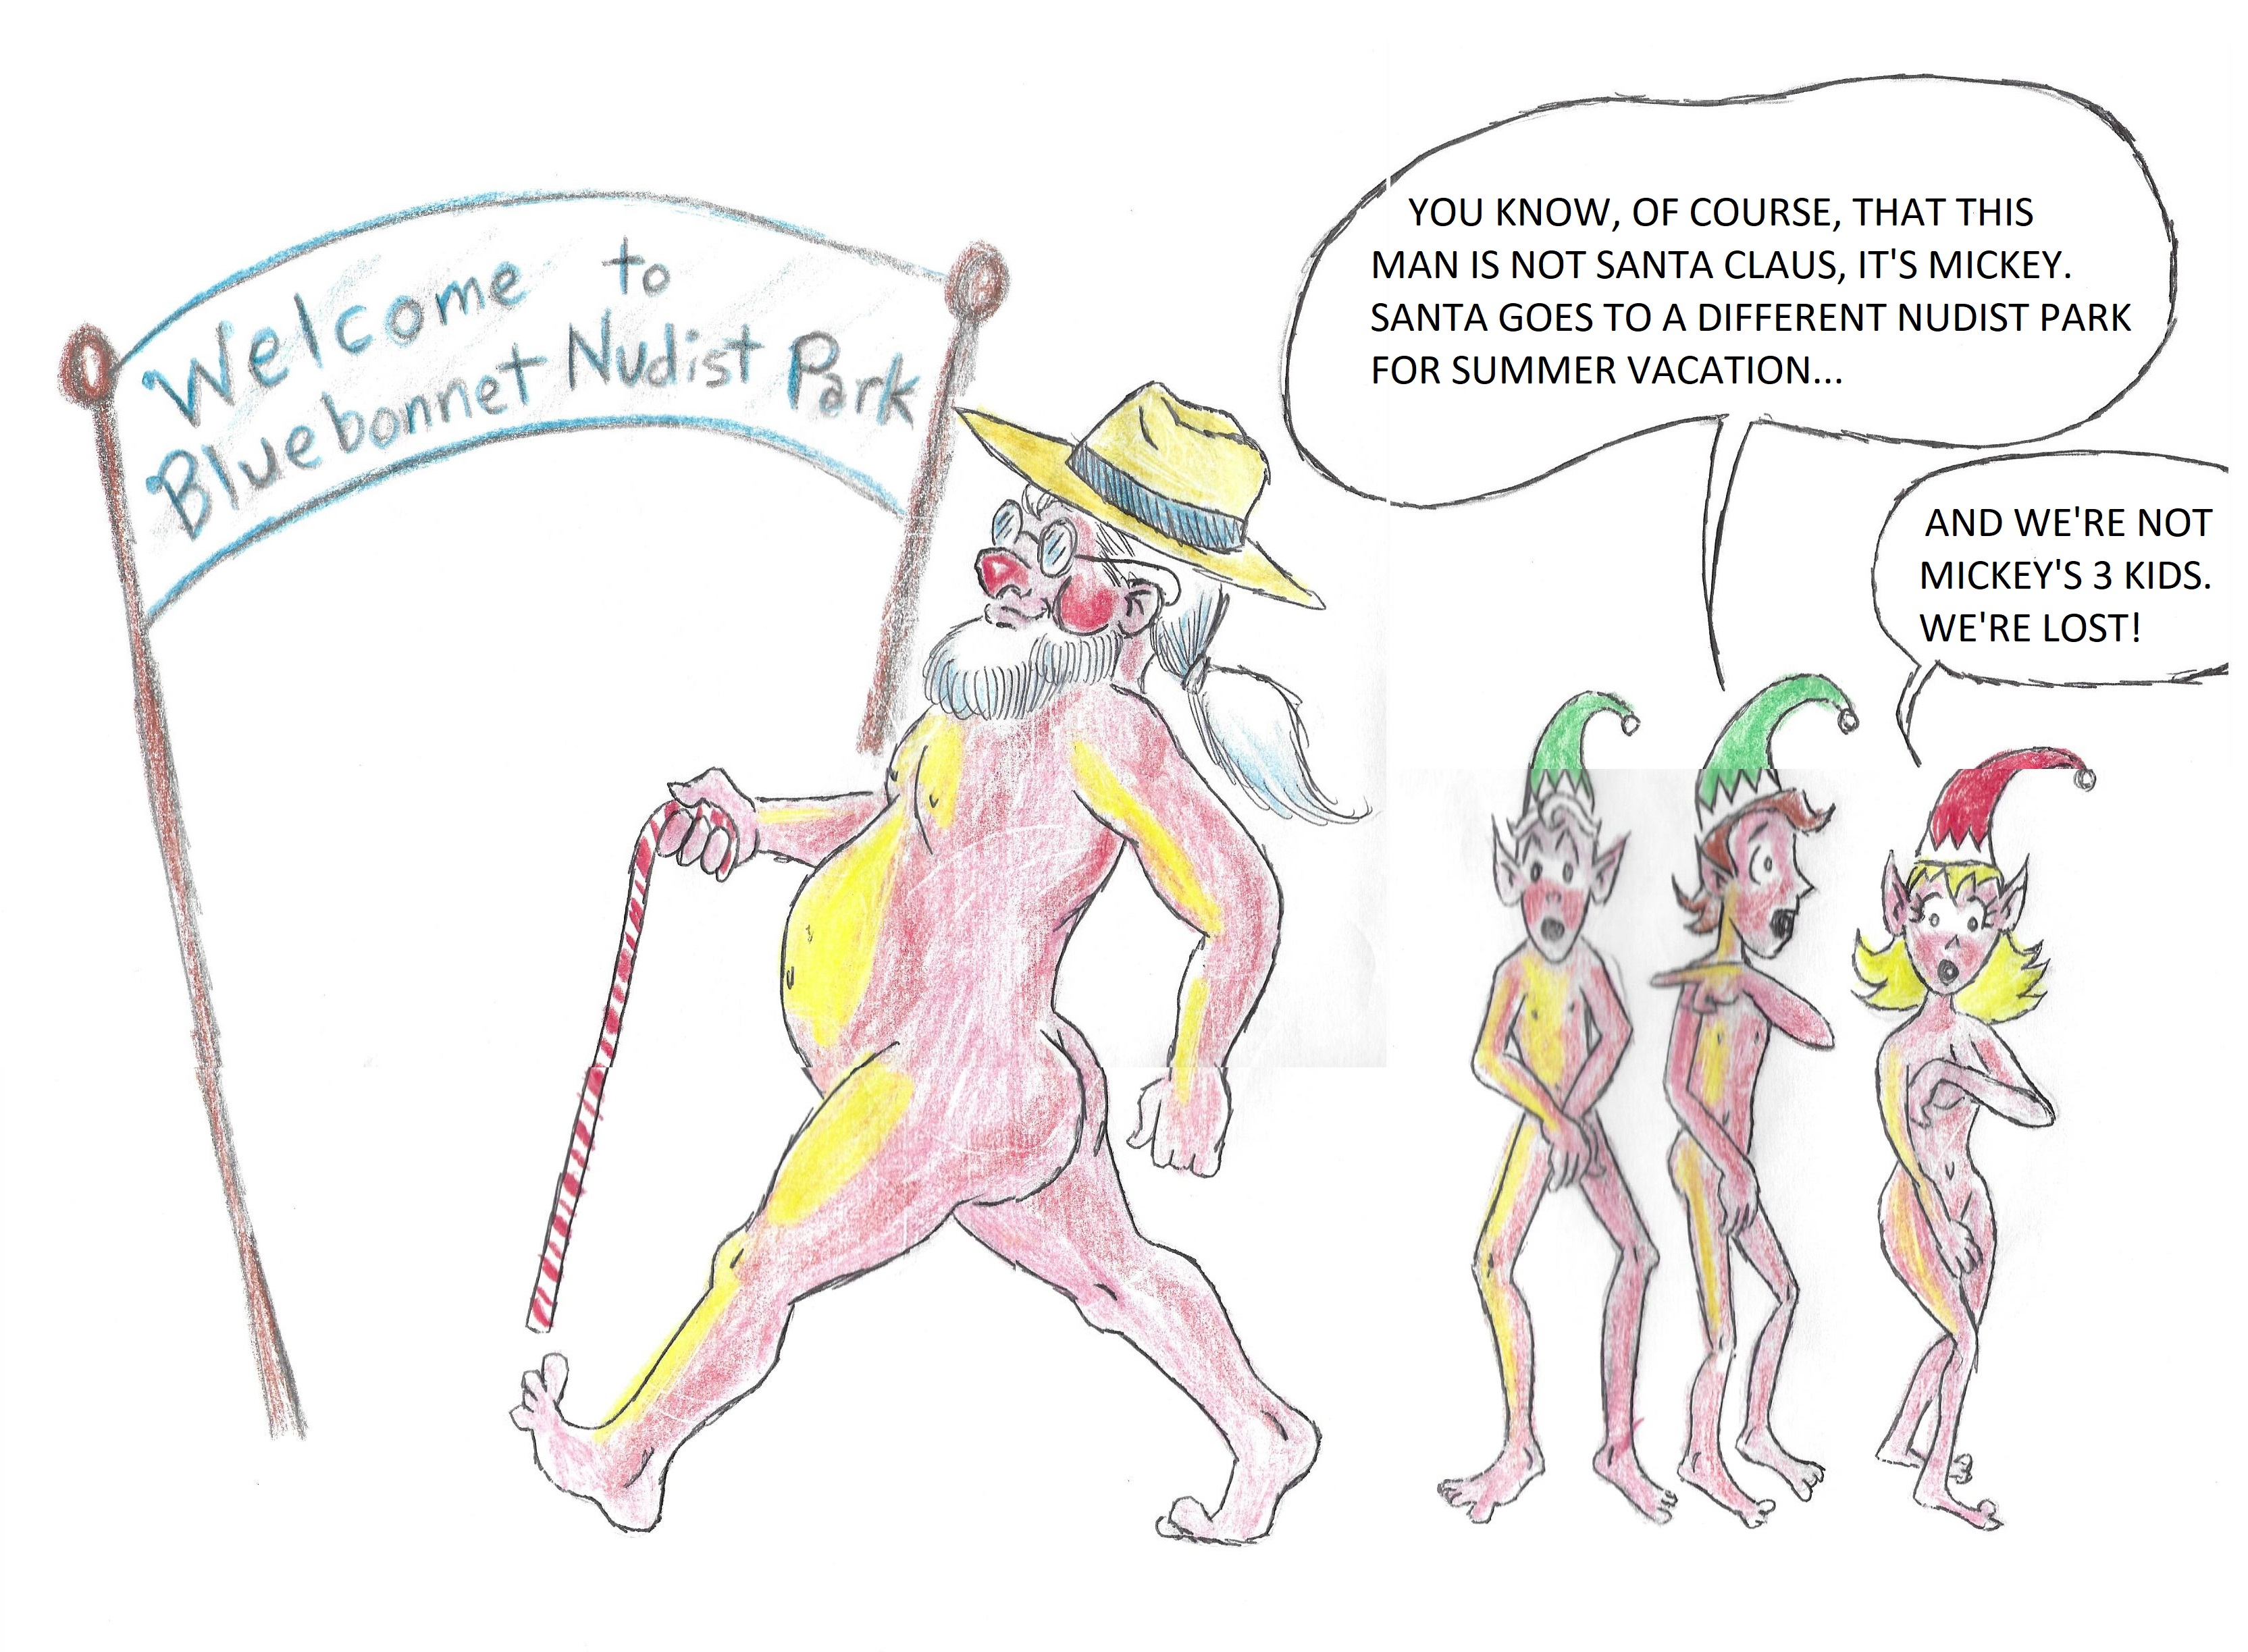 Welcome to
Bluebonnet Nudist Park
YOU KNOW, OF COURSE, THAT THIS
MAN IS NOT SANTA CLAUS, IT'S MICKEY.
SANTA GOES TO A DIFFERENT NUDIST PARK
FOR SUMMER VACATION...
AND WE'RE NOT
MICKEY'S 3 KIDS.
WE'RE LOST!